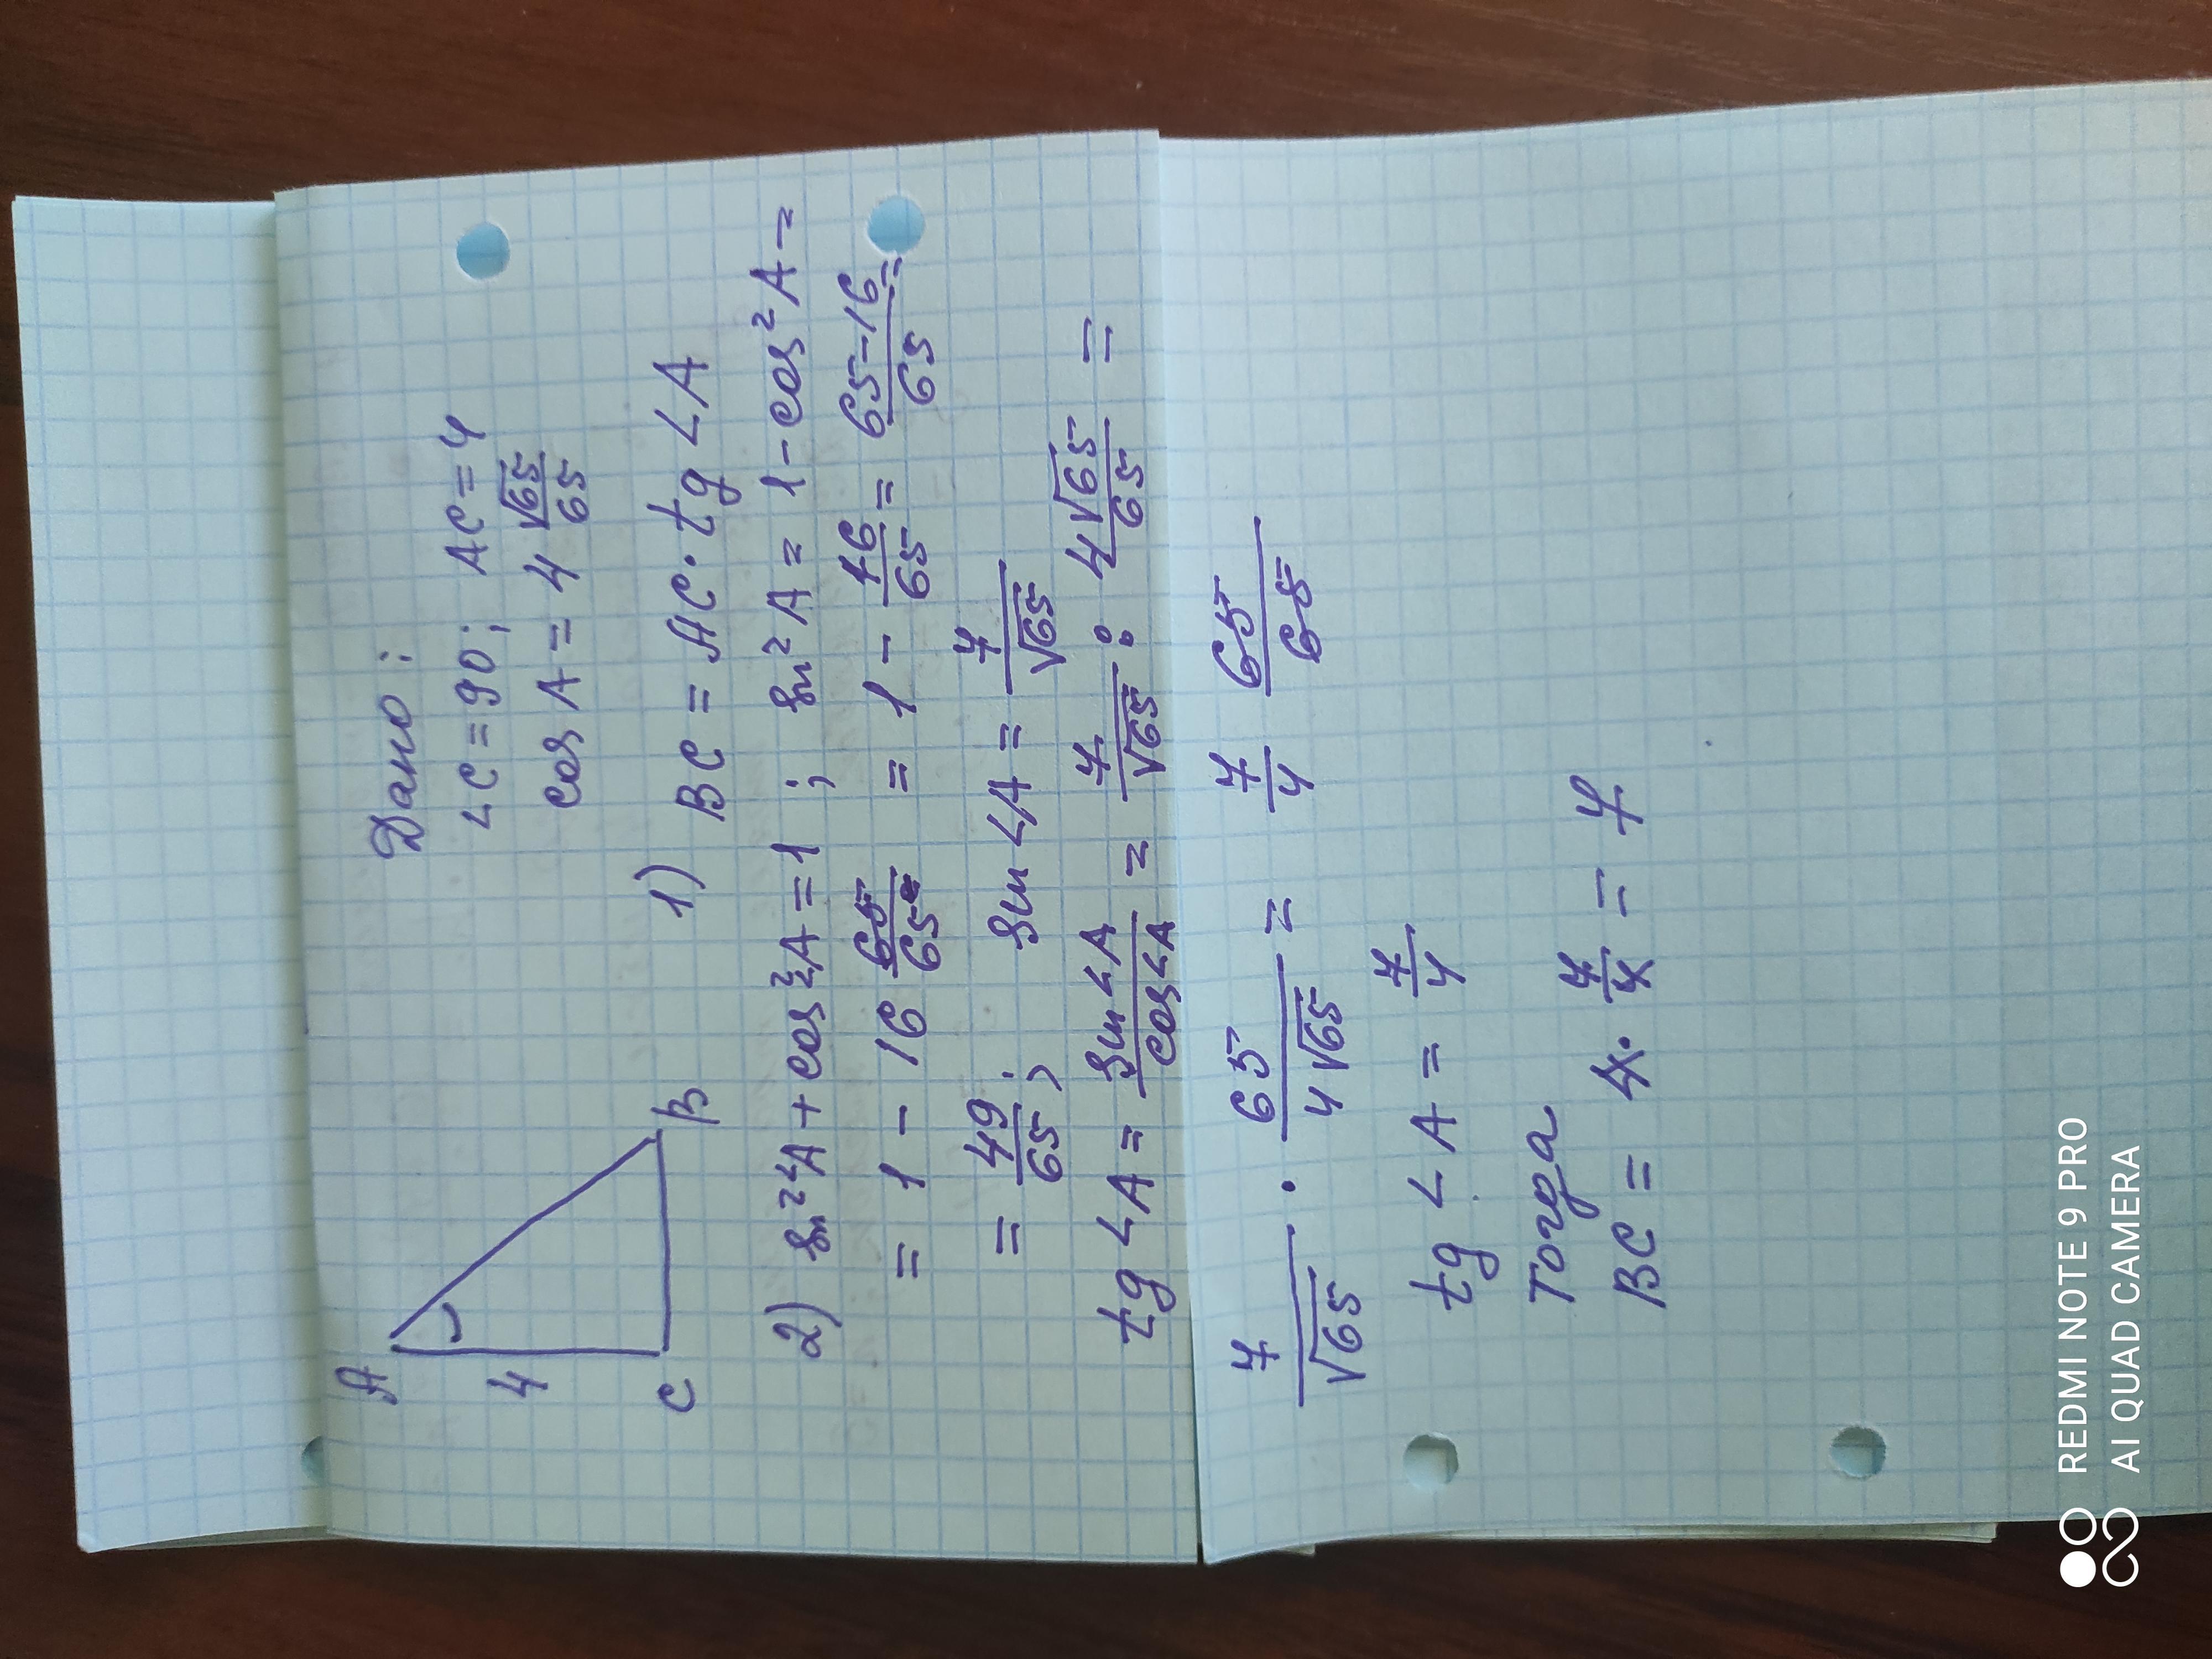 Дано:
∠C = 90; AC = 4
cos A = 4 √65/65
A
4
C
B
1) BC = AC · tg ∠A
2) sin²A + cos²A = 1; sin²A = 1 - cos²A =
= 1 - 16 65/65² = 1 - 16/65 = 65-16/65 =
= 49/65; sin ∠A = 7/√65
tg ∠A = sin∠A/cos∠A = 7/√65 : 4√65/65 =
7/√65 · 65/4√65 = 7/4 65/65
tg ∠A = 7/4
Тогда
BC = 4 · 7/4 = 7
REDMI NOTE 9 PRO
AI QUAD CAMERA